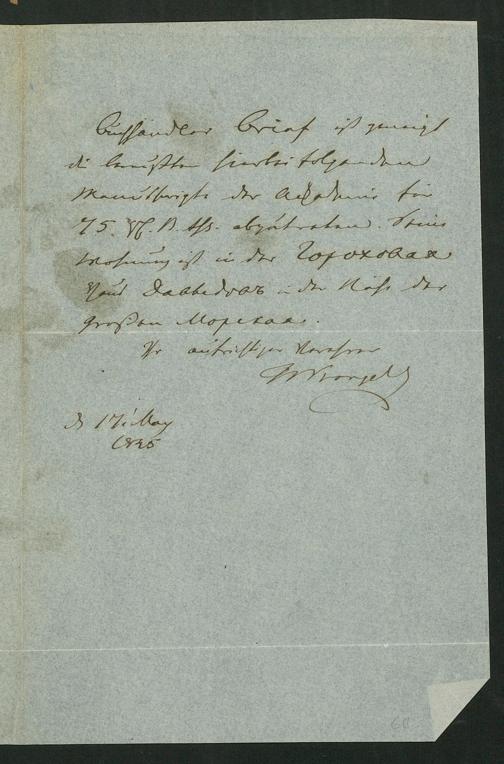 Buchhändler Brief ist geneigt
die bewußten hierbei folgenden
Manuscripte der Academie für
75. R. B. Ass. abzutreten. Seine
Wohnung ist in der Гороховая
Haus in der Nähe der
großen Морская.
Ihr aufrichtiger Verehrer
d. 17. May
1835
68